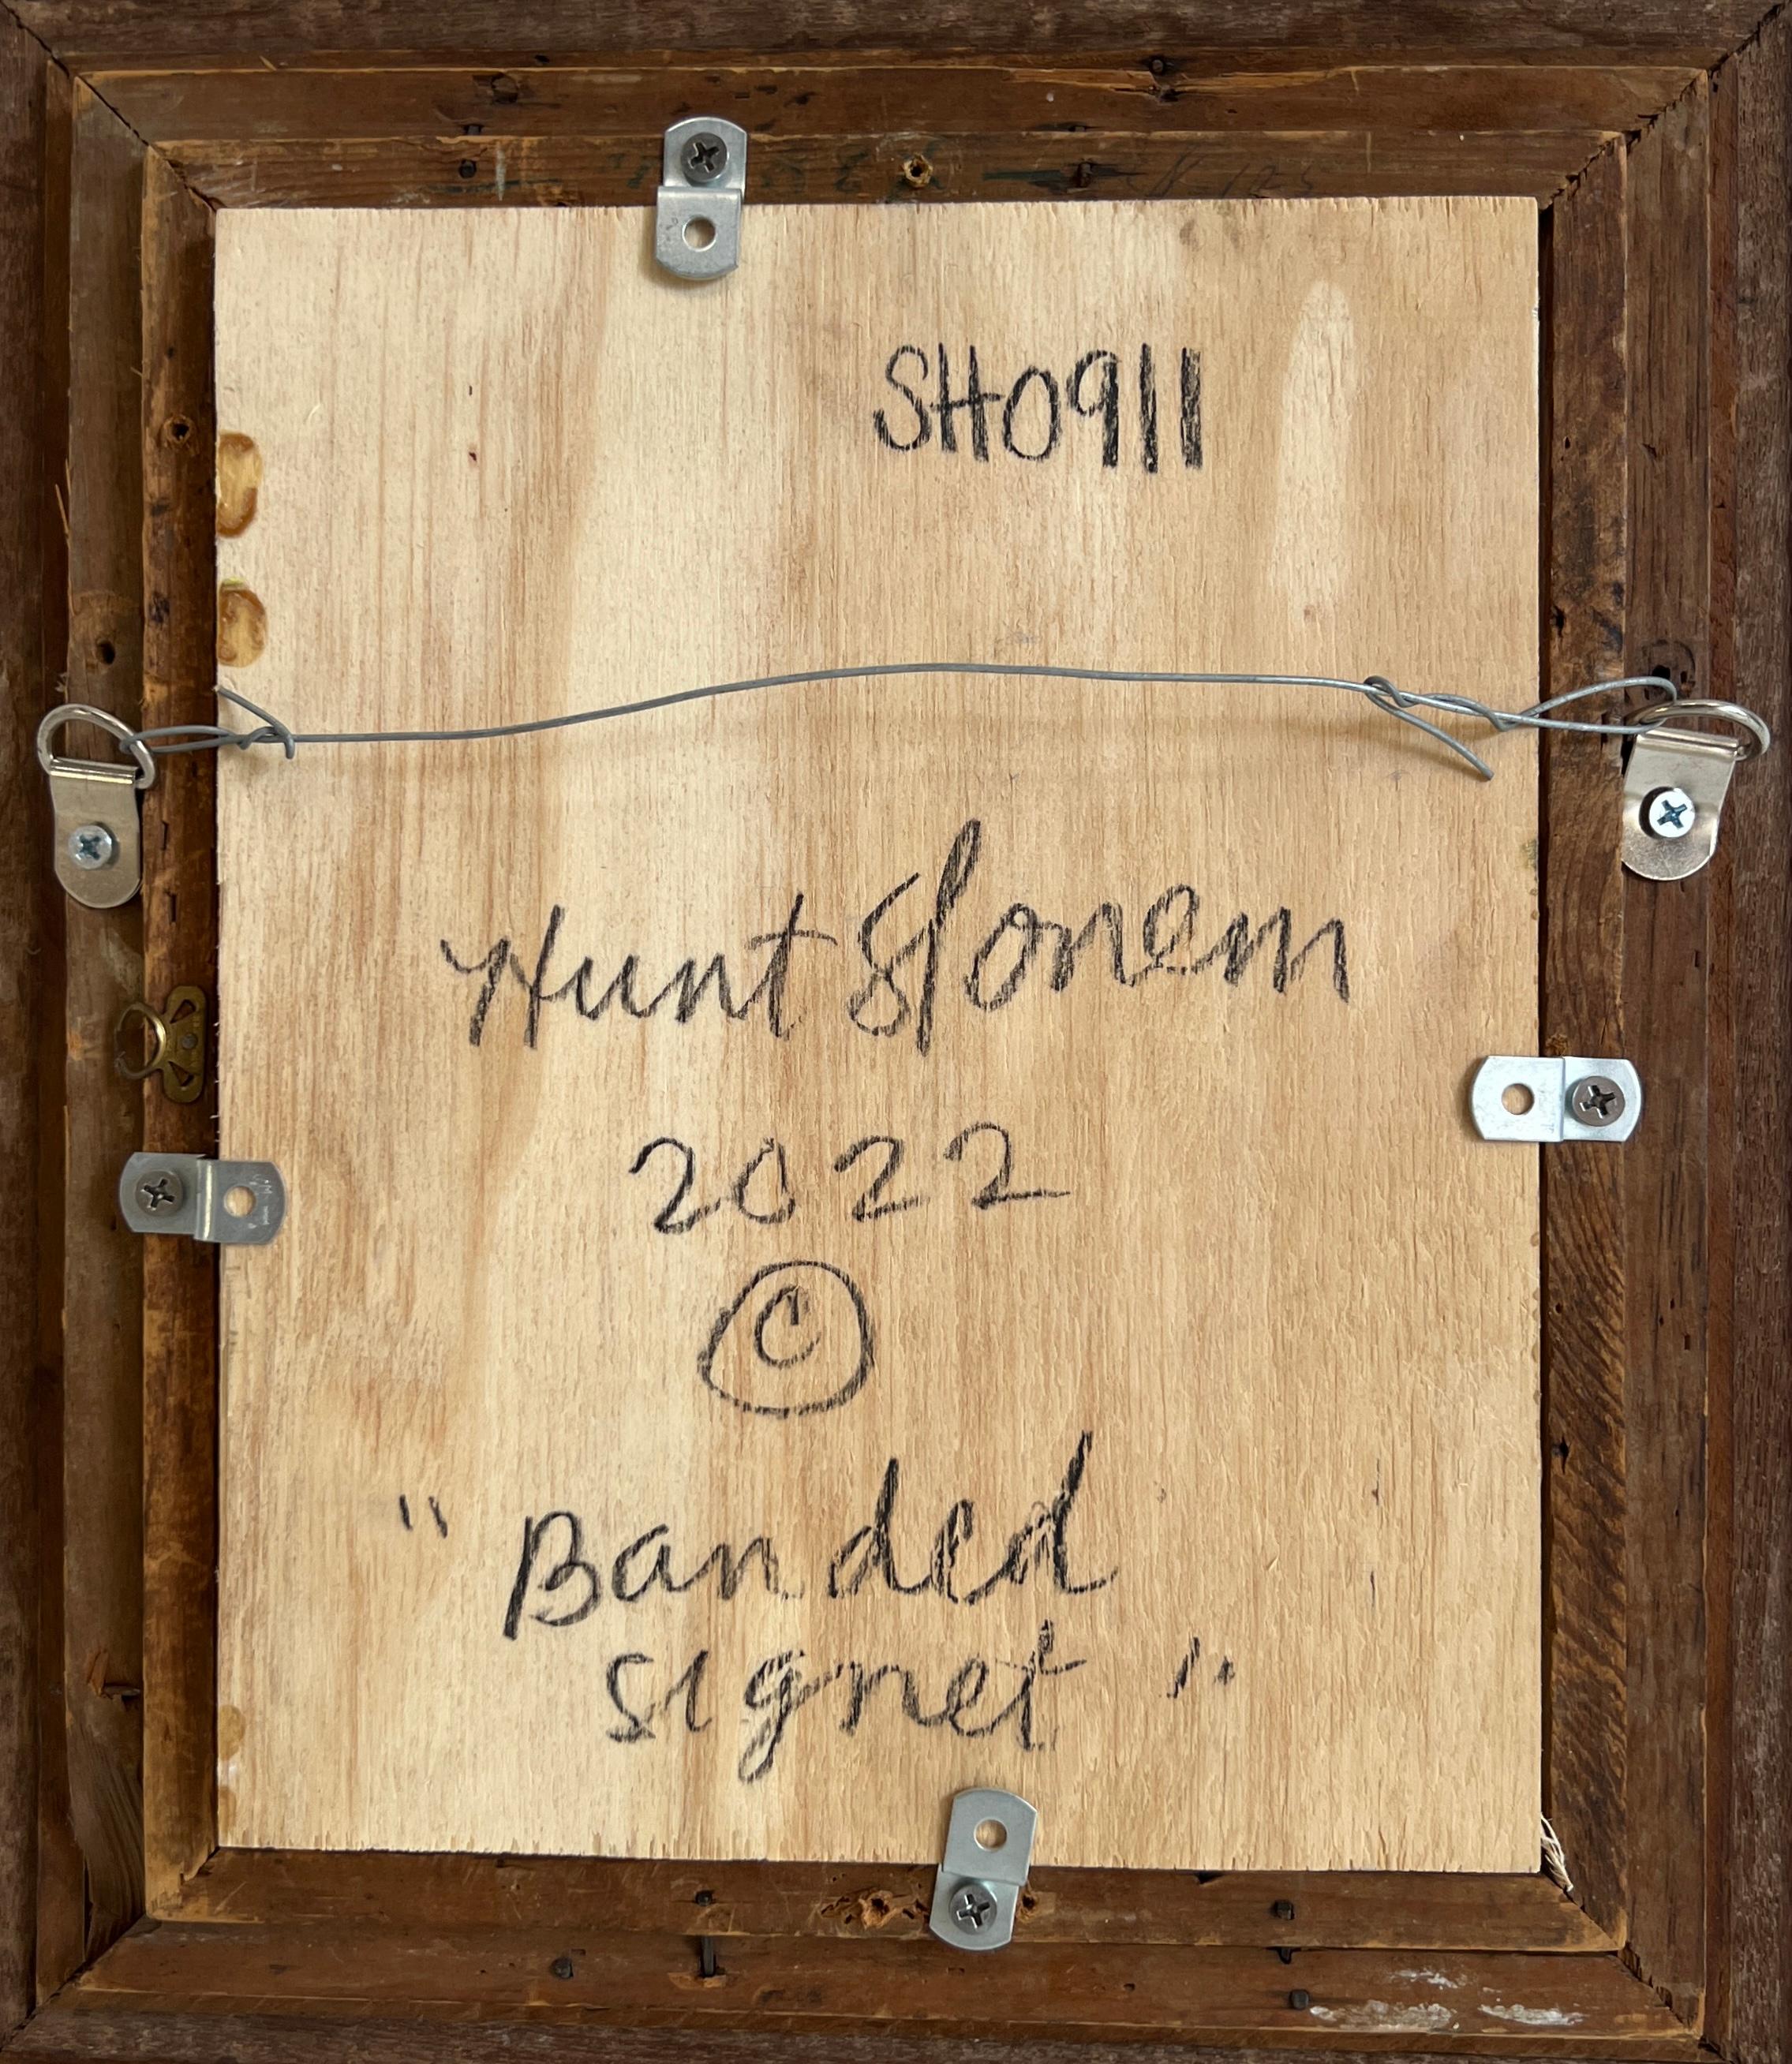 SH0911
Hunt Slonem
2022
©
"Banded
signet"